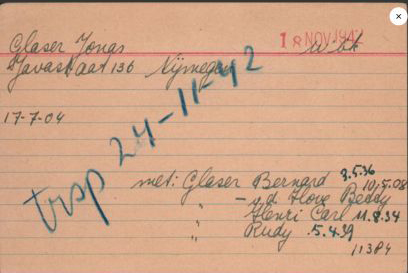 Glaser Jonas
18 NOV 1942
Javastraat 136 Nijmegen
17-7-04
trsp 24-11-42
met: Glaser Bernard 3.5.36
10.5.08
" - v.d. Hove Betty
" Henri Carl 11.8.34
" Rudy .5.4.39
11384